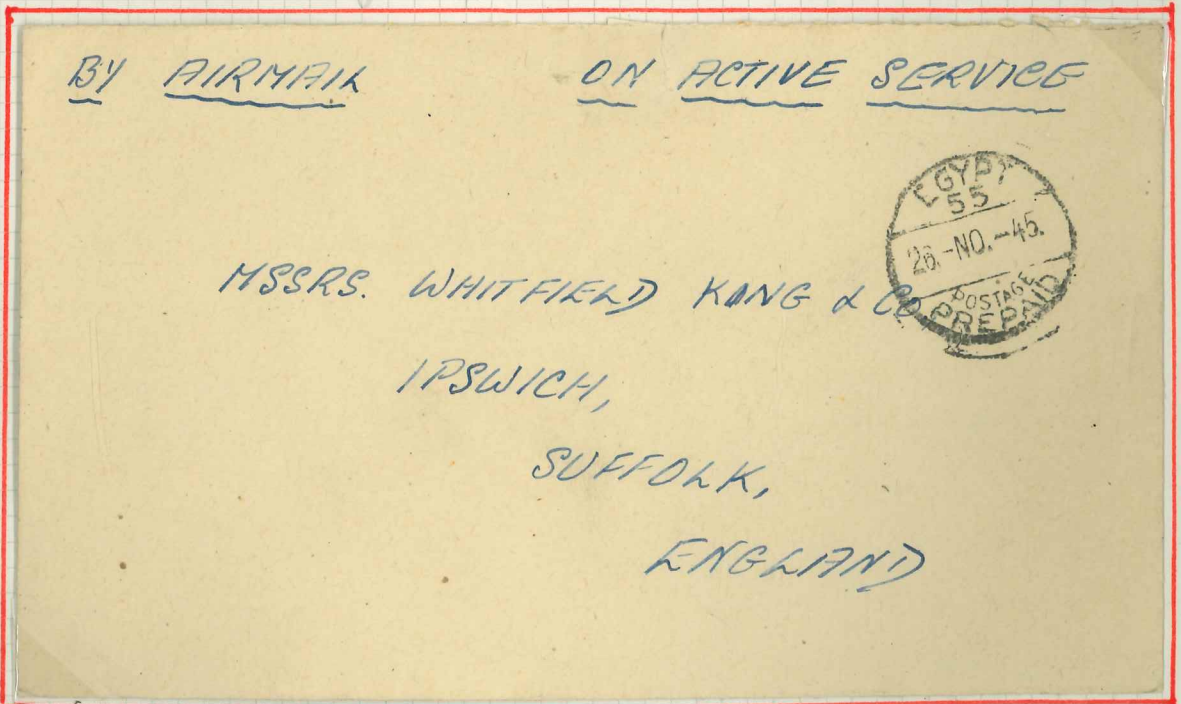 BY AIRMAIL ON ACTIVE SERVICE
EGYPT
55
26.-NO.-45.
POSTAGE
PREPAID
MSSRS. WHITFIELD KING & CO
IPSWICH,
SUFFOLK,
ENGLAND